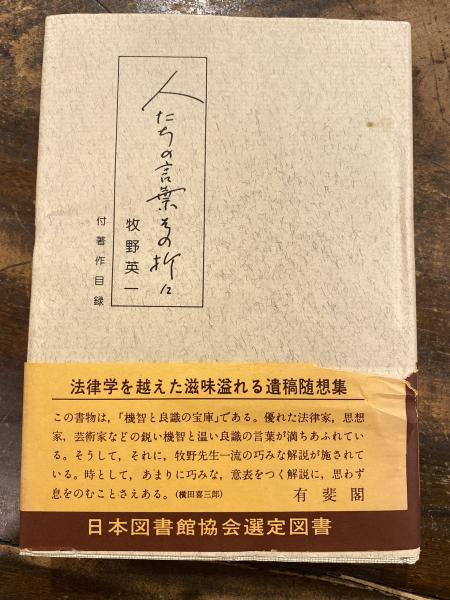 人たちの言葉その折に
牧野英一
付著作目録
法律学を越えた滋味溢れる遺稿随想集
この書物は，「機智と良識の宝庫」である。優れた法律家，思想
家，芸術家などの鋭い機智と温い良識の言葉が満ちあふれてい
る。そうして，それに，牧野先生一流の巧みな解説が施されて
いる。時として，あまりに巧みな，意表をつく解説に，思わず
息をのむことさえある。(横田喜三郎)
有斐閣
日本図書館協会選定図書